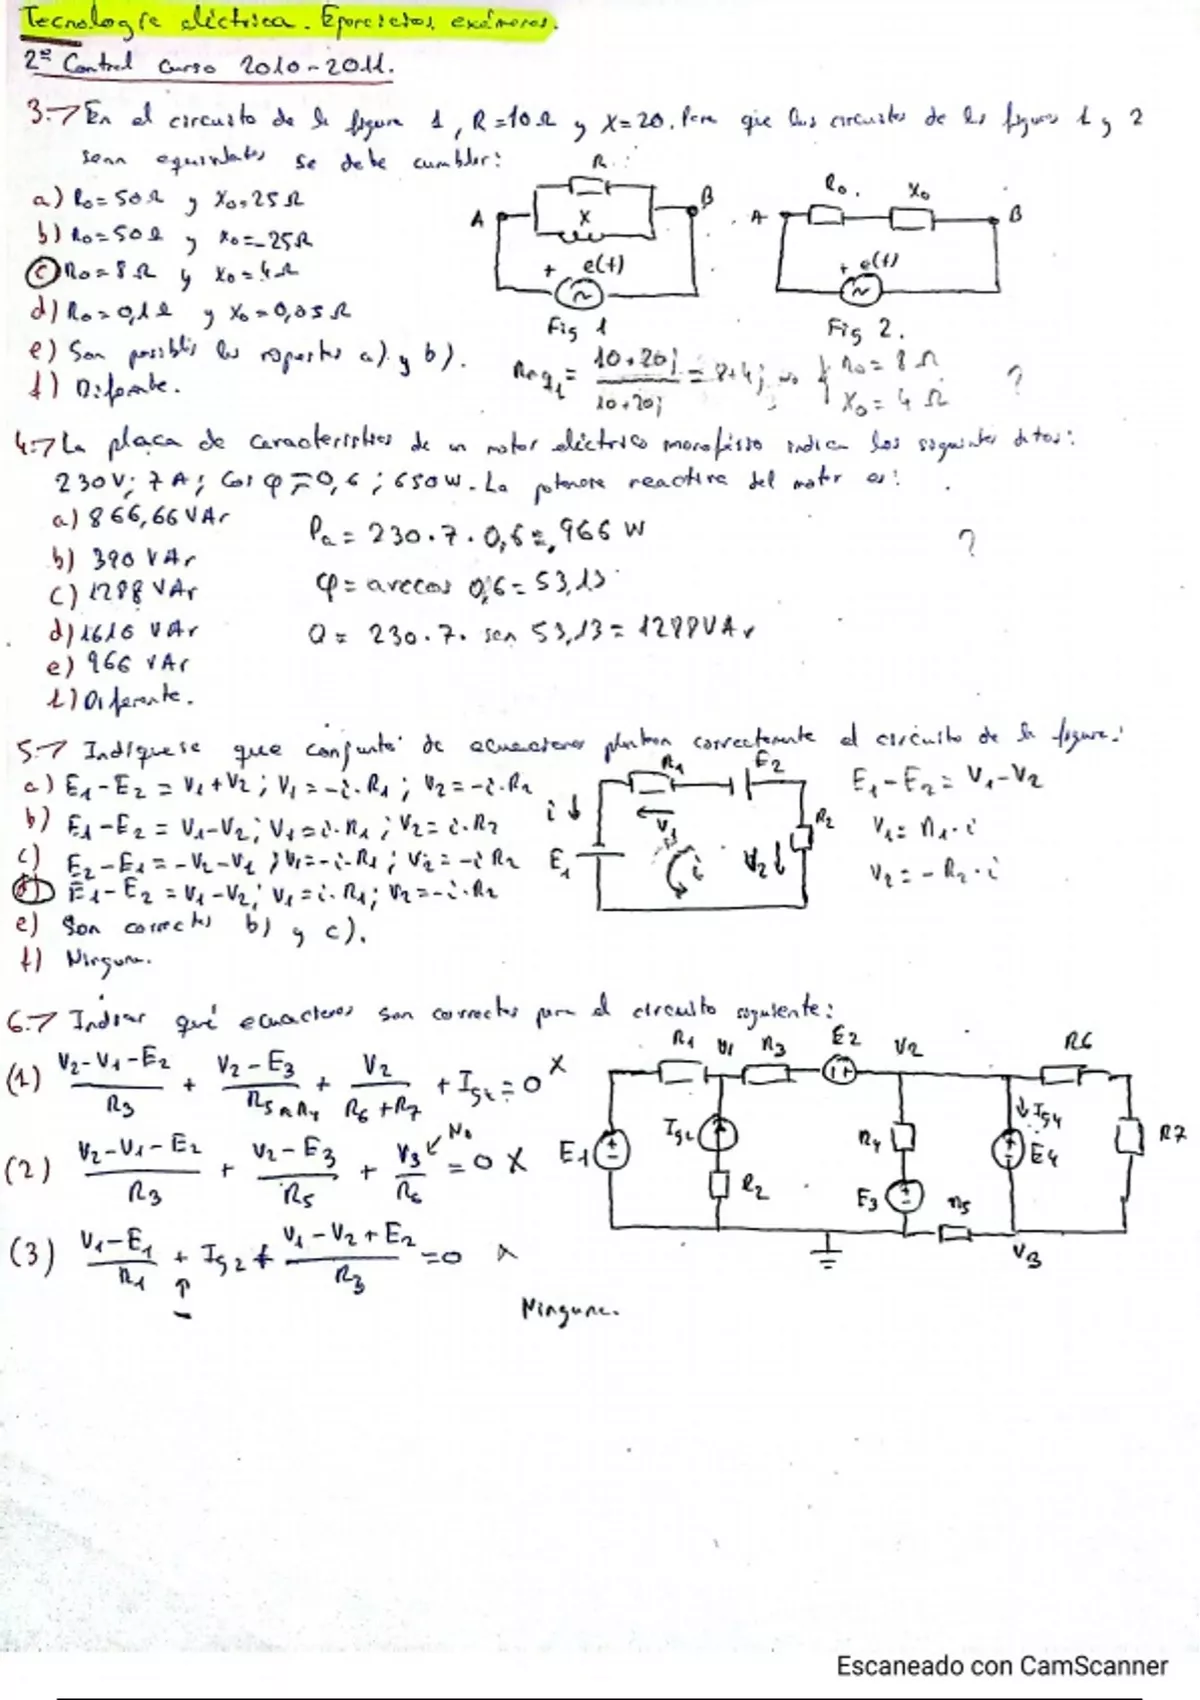 Tecnología eléctrica. Ejercicios exámenes.
2º Control curso 2010-2011.
3.-> En el circuito de la figura 1, R=10Ω y X=20. Para que los circuitos de las figuras 1 y 2
sean equivalentes se debe cumplir:
a) Ro=50Ω y Xo=25Ω
b) Ro=50Ω y Xo=-25Ω
c) Ro=8Ω y Xo=4Ω
d) Ro=0,1Ω y Xo=0,05Ω
e) Son posibles las respuestas a) y b).
f) Diferente.
R
A
X
B
+ e(t)
~
Fig 1
Ro
Xo
A
B
+ e(t)
~
Fig 2.
Req1 = 10·20j / 10+20j = 8+4j => { Ro = 8 Ω
Xo = 4 Ω
?
4.-> La placa de características de un motor eléctrico monofásico indica los siguientes datos:
230V; 7A; Cos φ=0,6; 650W. La potencia reactiva del motor es:
a) 866,66 VAr
b) 390 VAr
c) 1288 VAr
d) 1616 VAr
e) 966 VAr
f) Diferente.
Pa = 230·7·0,6 = 966 W
φ = arccos 0,6 = 53,13
Q = 230·7·sen 53,13 = 1288VAr
?
5.-> Indíquese que conjunto de ecuaciones plantean correctamente el circuito de la figura:
a) E1-E2 = V1+V2; V1=-i·R1; V2=-i·R2
b) E1-E2 = V1-V2; V1=i·R1; V2=i·R2
c) E2-E1 = -V2-V1; V1=-i·R1; V2=-i R2
d) E1-E2 = V1-V2; V1=i·R1; V2=-i·R2
e) Son correctas b) y c).
f) Ninguna.
R1
E2
i
V1
R2
E1
i
V2
E1-E2 = V1-V2
V1 = R1·i
V2 = -R2·i
6.-> Indicar qué ecuaciones son correctas para el circuito siguiente:
(1) V2-V1-E2 / R3 + V2-E3 / R5 R4 + V2 / R6+R7 + Ig4 = 0 X
(2) V2-V1-E2 / R3 + V2-E3 / R5 + V3 / R6 = 0 X
No
(3) V1-E1 / R1 + Ig2 + V1-V2+E2 / R3 = 0 X
-
Ninguna.
R1
V1
R3
E2
V2
R6
Ig2
Ig4
R4
R7
E1
R2
E4
E3
R5
V3
Escaneado con CamScanner